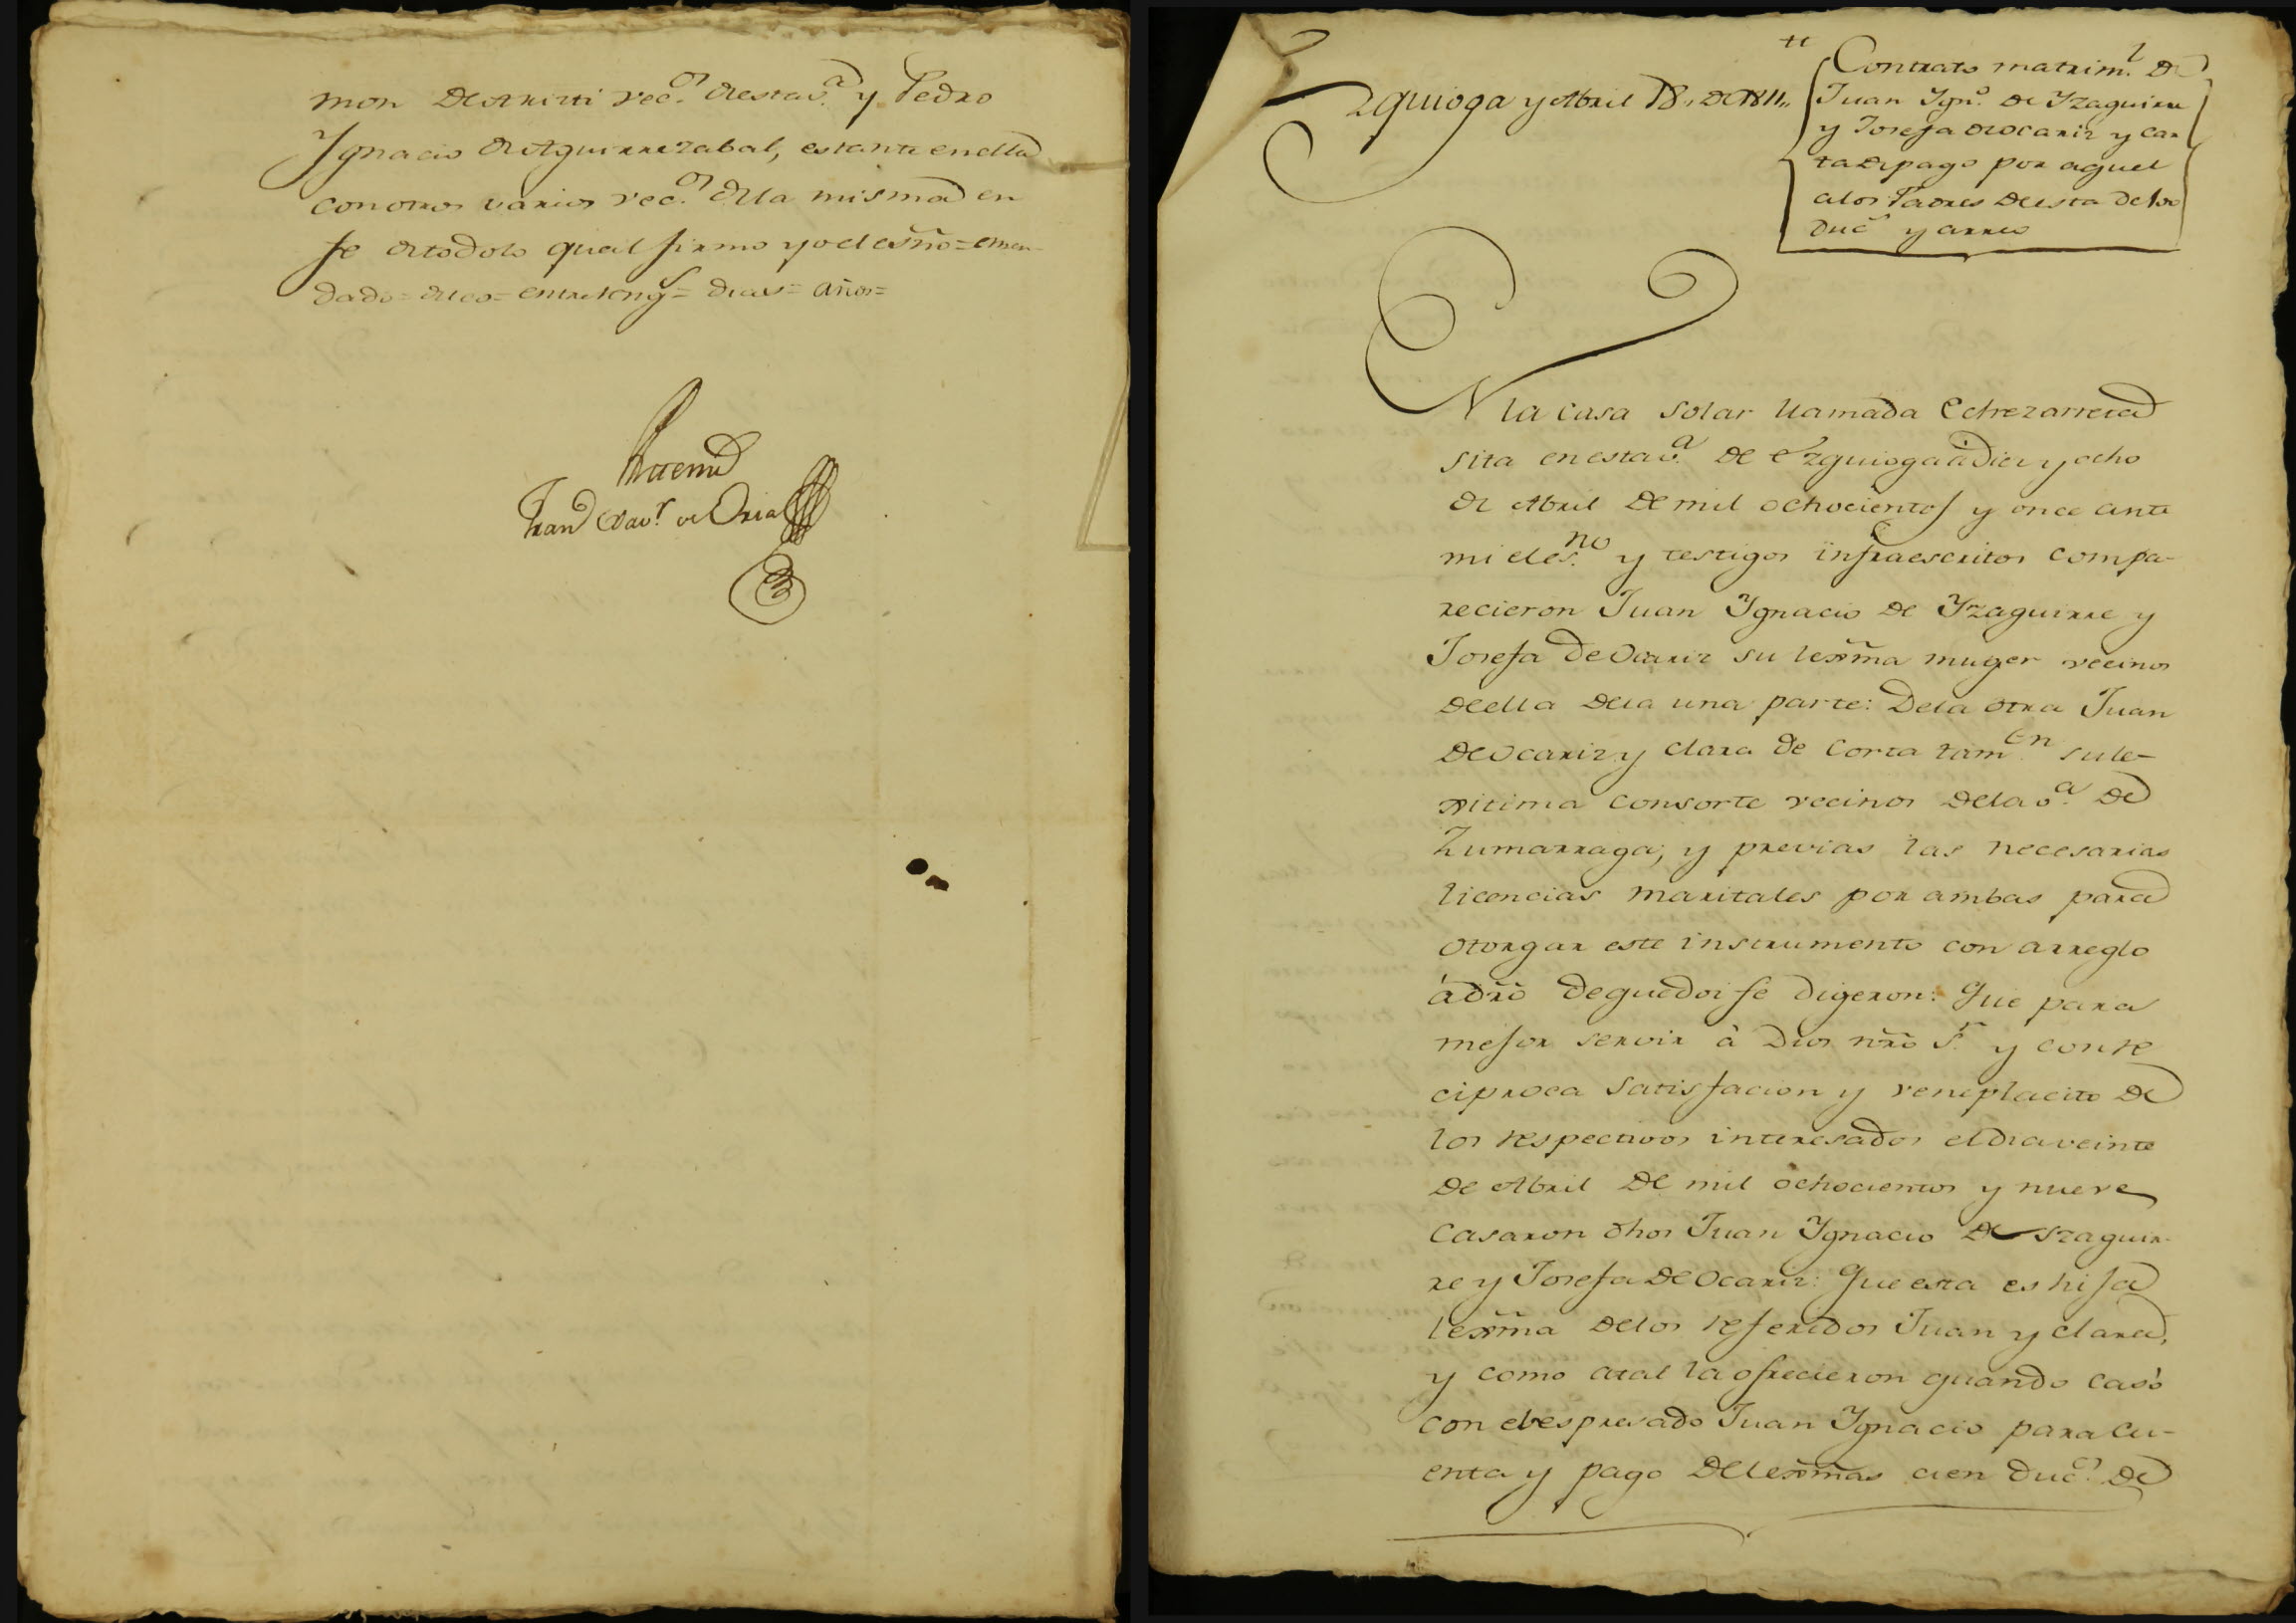 mon de Urruti vec.os de esta v.a y Pedro
Ygnacio de Aguirrezabal, estante en ella
con otros varios vec.os de la misma en
fe de todo lo qual firmo yo el esño = emen
dado = = entrereng.s = dias = años =
Antemi
Fran.co Xav.r de Oria
Ezquioga y Abril 18,, de 1811,,
Contrato matrim.l de
Juan Ygn.o de Yzaguirre
y Josefa de Ocariz y car
ta de pago por aquel
a los Padres de esta de 100
duc.s y arreo
EN la casa solar llamada Echezarreta
sita en esta v.a de Ezquioga à diez y ocho
de Abril de mil ochocientos y once ante
mi el es.no y testigos infraescritos compa-
recieron Juan Ygnacio de Yzaguirre y
Josefa de Ocariz su lexma muger vecinos
de ella de la una parte: De la otra Juan
de Ocariz y Clara de Corta tam.en su le-
xitima consorte vecinos de la v.a de
Zumarraga; y previas las necesarias
licencias maritales por ambas para
otorgar este instrumento con arreglo
á dro de que doi fe digeron: Que para
mejor servir à Dios nro S.r y con re
ciproca satisfacion y veneplacito de
los respectivos interesados el dia veinte
de Abril de mil ochocientos y nueve
casaron dhos Juan Ygnacio de Yzaguir-
re y Josefa de Ocariz: Que esta es hija
lexma de los referidos Juan y Clara,
y como atal la ofrecieron quando casó
con el espresado Juan Ygnacio para cu-
enta y pago de lexmas cien duc.s de